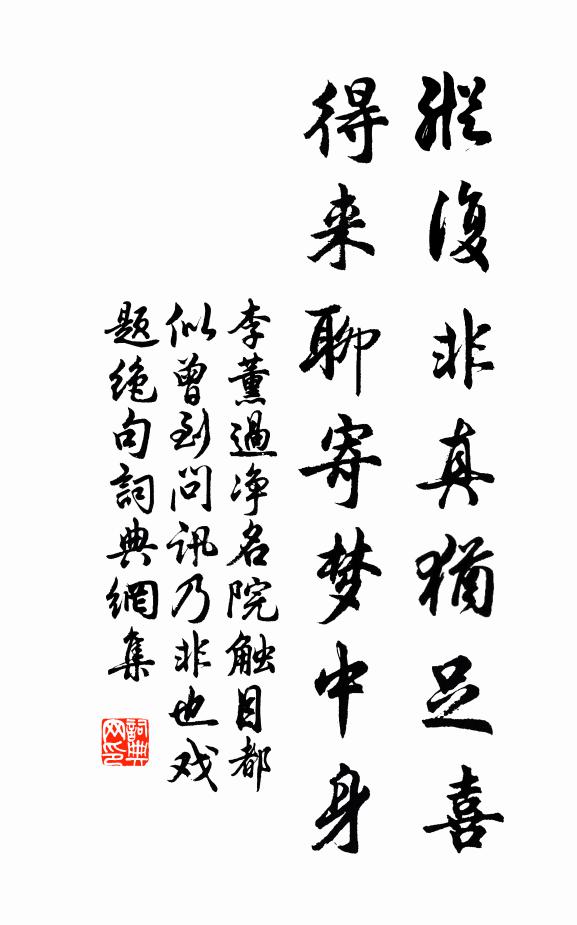 縱復非真猶足喜
得来聊寄梦中身
李薰過净名院触目都
似曾到问讯乃非也戏
题绝句詞典網集
詞典
网印